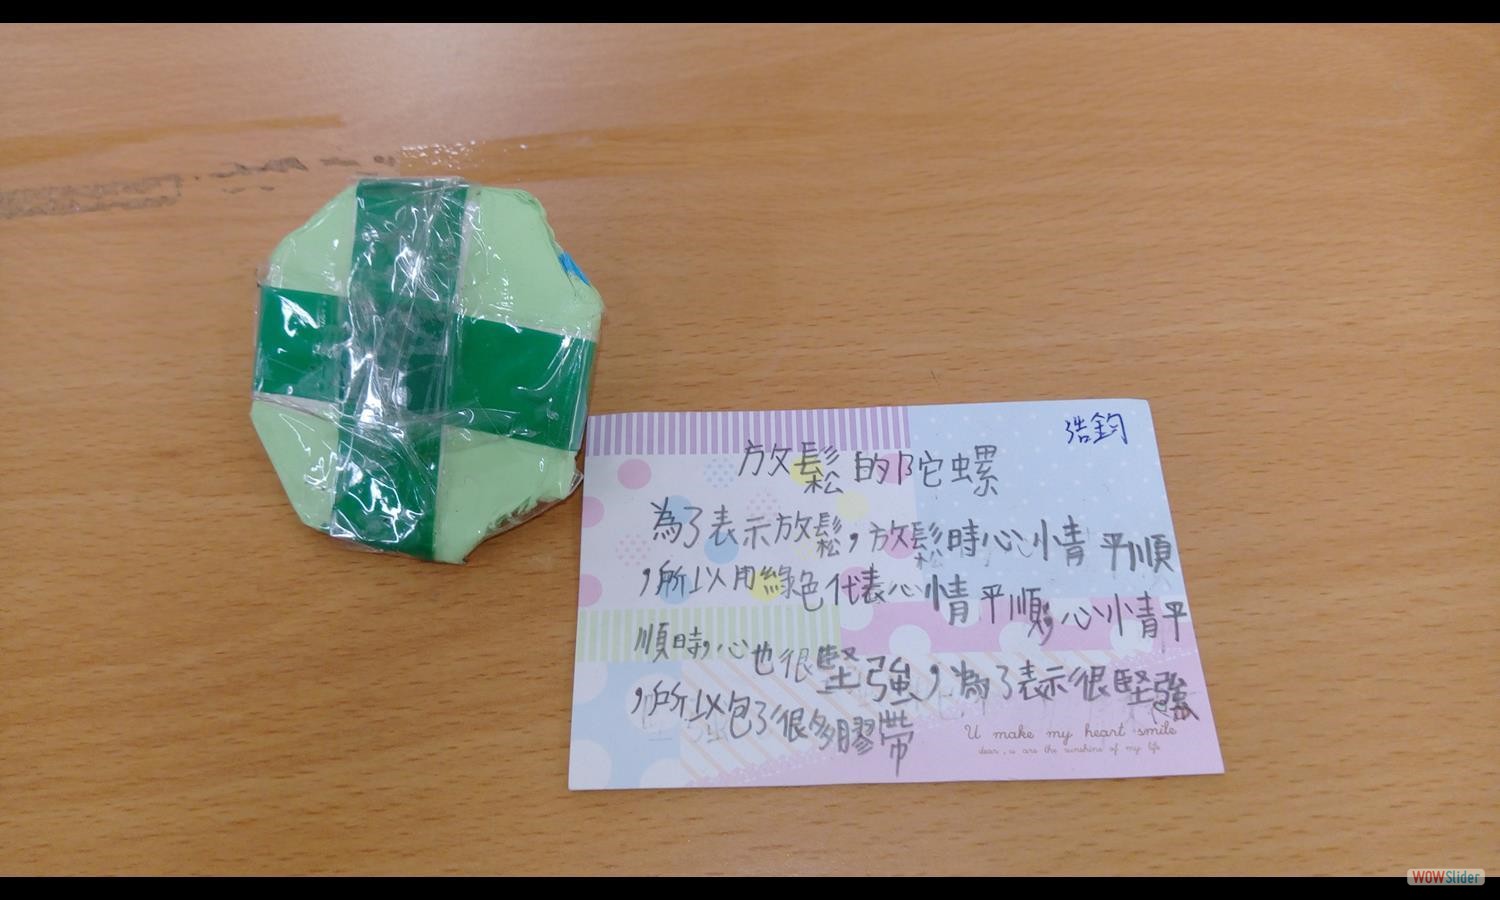 浩鈞
放鬆的陀螺
為了表示放鬆，放鬆時心情平順
，所以用綠色代表心情平順，心情平
順時，心也很堅強，為了表示很堅強
，所以包了很多膠帶
U make my heart smile
dear, u are the sunshine of my life
WOWSlider